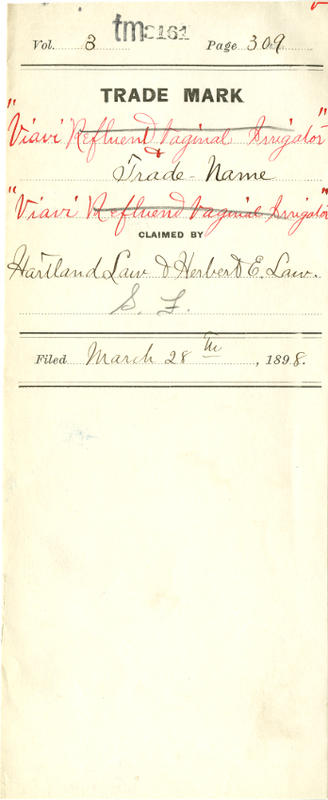 Vol. 3 tm 3161 Page 309
TRADE MARK
"Viavi Refluend Vaginal Irrigator"
&
Trade-Name
"Viavi Refluend Vaginal Irrigator"
CLAIMED BY
Hartland Law & Herbert E. Law.
S. F.
Filed March 28th, 1898.